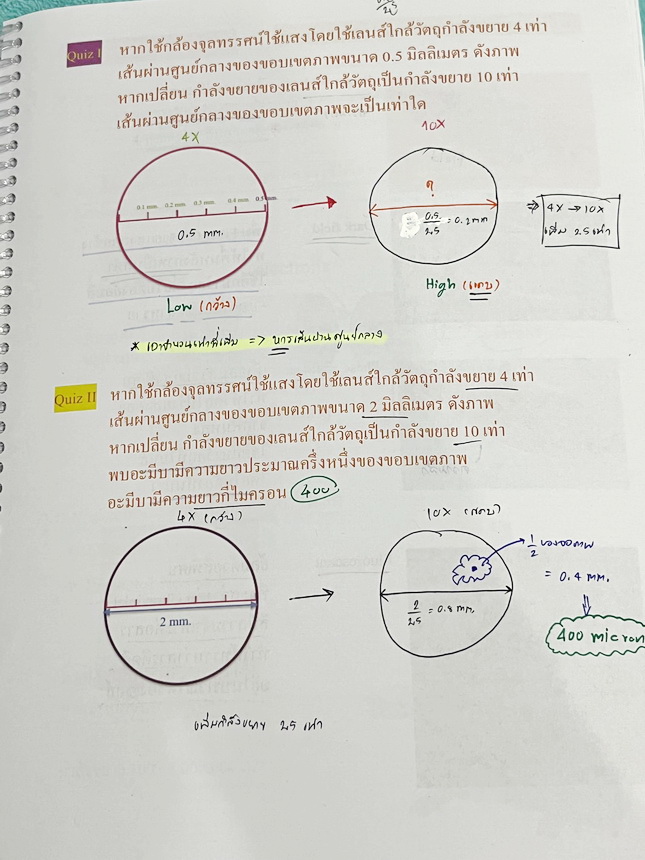 Quiz I
หากใช้กล้องจุลทรรศน์ใช้แสงโดยใช้เลนส์ใกล้วัตถุกำลังขยาย 4 เท่า
เส้นผ่านศูนย์กลางของขอบเขตภาพขนาด 0.5 มิลลิเมตร ดังภาพ
หากเปลี่ยน กำลังขยายของเลนส์ใกล้วัตถุเป็นกำลังขยาย 10 เท่า
เส้นผ่านศูนย์กลางของขอบเขตภาพจะเป็นเท่าใด
4X
10X
0.1 mm. 0.2 mm. 0.3 mm. 0.4 mm. 0.5 mm.
0.5 mm.
?
0.5/2.5 = 0.2 mm
⇒ 4X → 10X
เพิ่ม 2.5 เท่า
Low (กว้าง)
High (แคบ)
* เอาจำนวนเท่าที่เพิ่ม => หารเส้นผ่านศูนย์กลาง
Quiz II
หากใช้กล้องจุลทรรศน์ใช้แสงโดยใช้เลนส์ใกล้วัตถุกำลังขยาย 4 เท่า
เส้นผ่านศูนย์กลางของขอบเขตภาพขนาด 2 มิลลิเมตร ดังภาพ
หากเปลี่ยน กำลังขยายของเลนส์ใกล้วัตถุเป็นกำลังขยาย 10 เท่า
พบอะมีบามีความยาวประมาณครึ่งหนึ่งของขอบเขตภาพ
อะมีบามีความยาวกี่ไมครอน 400
4X (กว้าง)
10X (แคบ)
2 mm.
2/2.5 = 0.8 mm.
1/2 ของจอภาพ
= 0.4 mm.
400 micron
เพิ่มกำลังขยาย 2.5 เท่า